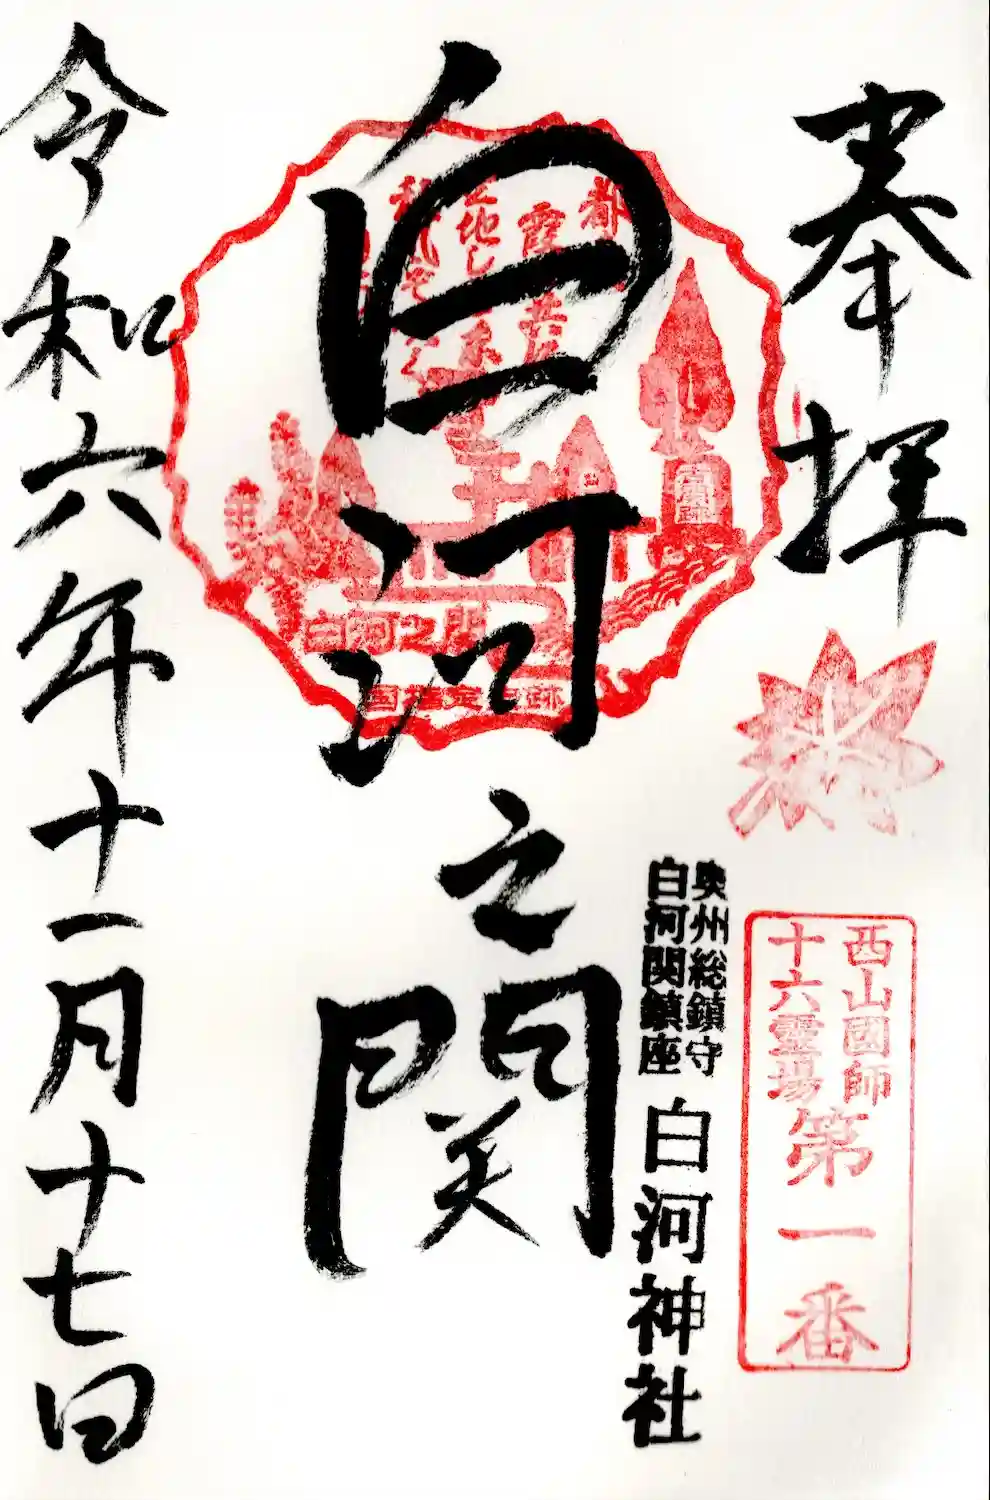 奉拝
西山國師
十六霊場
第一番
奥州総鎮守
白河関鎮座
白河神社
白河之関
都
霞
白河之関
令和六年十一月十七日